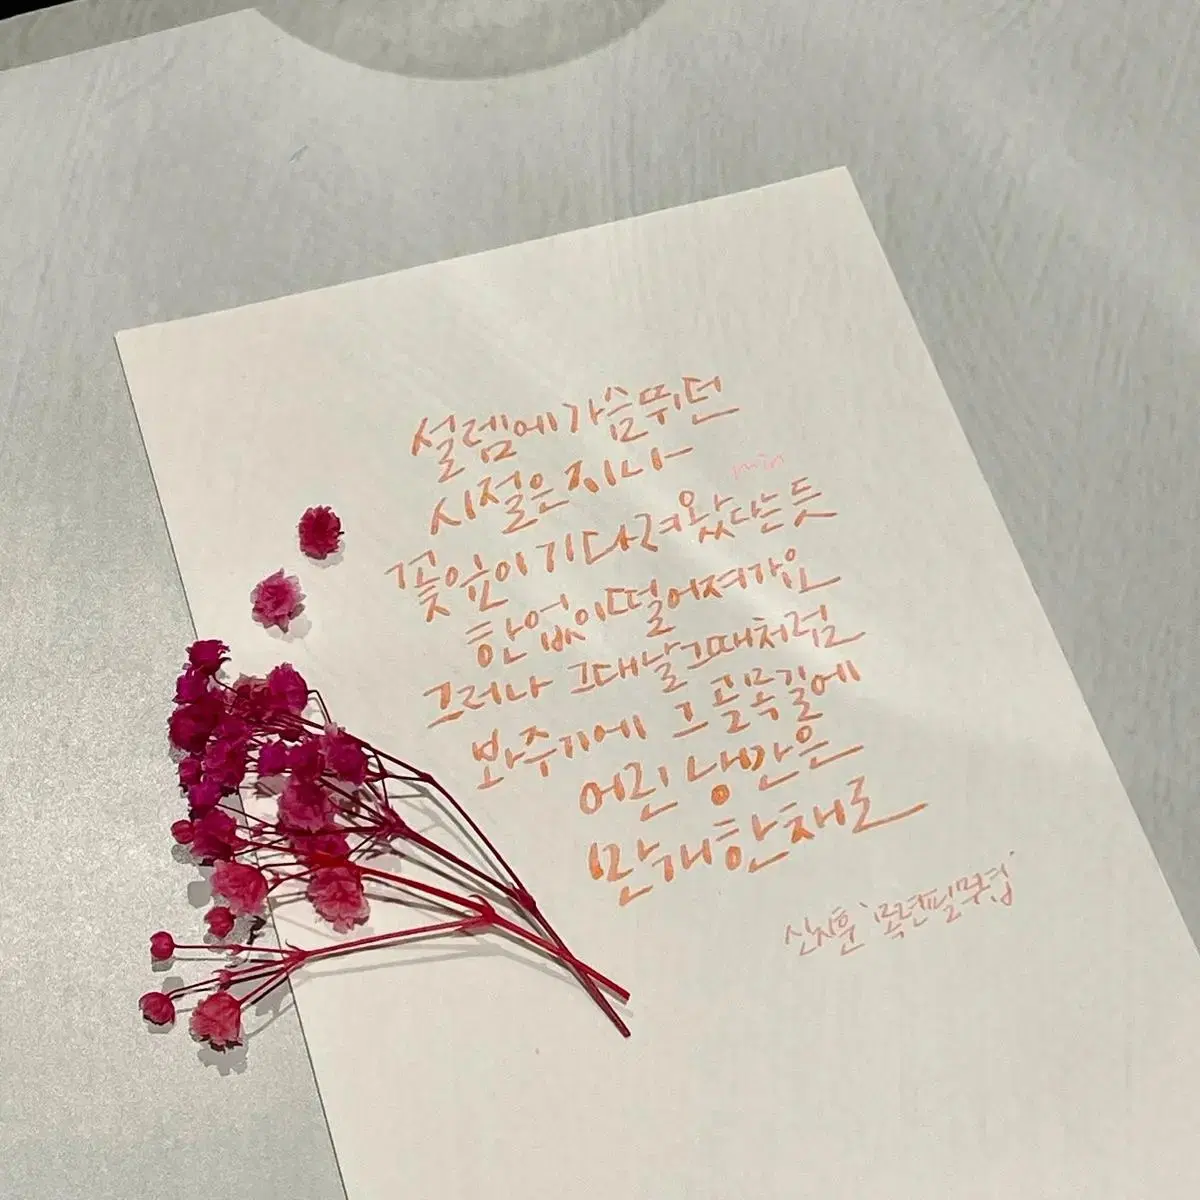 설렘에 가슴 뛰던
시절은 지나
min
꽃잎이 기다려왔다는 듯
한없이 떨어져가요
그러나 그대 날 그때처럼
봐주기에 그 골목길에
어린 낭만은
만개한 채로
신지훈 '목련필무렵'